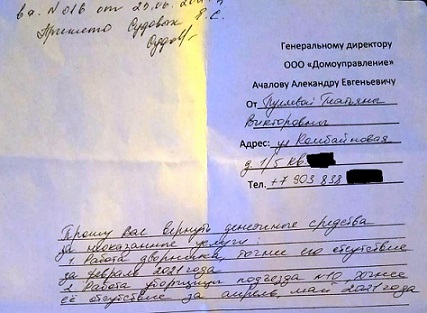 вх. №016 от 25.06.202
Принято Судовож Е.С.
Генеральному директору
ООО «Домоуправление»
Ачалову Алекандру Евгеньевичу
От Пулевай Татьяны
Викторовны
Адрес: ул Комбайновая
д 1/5 кв
Тел. +7 903 838
Прошу вас вернуть денежные средства
за неоказанные услуги:
1. Работа дворника, точнее его отсутствие
за февраль 2021 года
2. Работа уборщицы подъезда №10, точнее
её отсутствие за апрель, май 2021 года